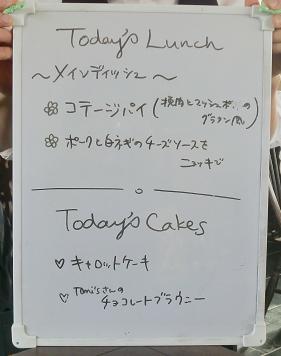 Today's Lunch
～メインディッシュ～
コテージパイ(挽肉とマッシュポ の
グラタン風)
ポークと白ネギのチーズソースを
ニョッキで
Today's Cakes
♡ キャロットケーキ
♡ Tomi'sさんの
チョコレートブラウニー